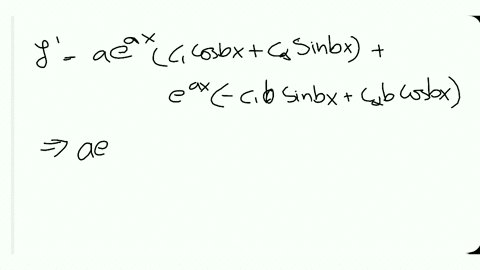 y' = ae^{ax}(c₁cosbx + c₂ sinbx) +
e^{ax}(-c₁b sinbx + c₂b cosbx)
⇒ ae